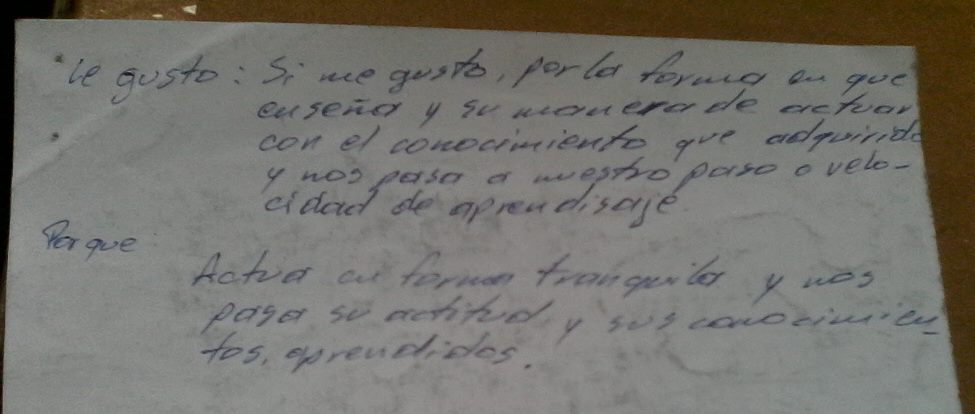 Le gusto: Si me gusto, por la forma en que
enseña y su manera de actuar
con el conocimiento que adquirido
y nos pasa a nuestro paso o velo-
cidad de aprendisaje.
Porque:
Actua en forma tranquila y nos
pasa su actitud y sus conocimien-
tos, aprendidos.